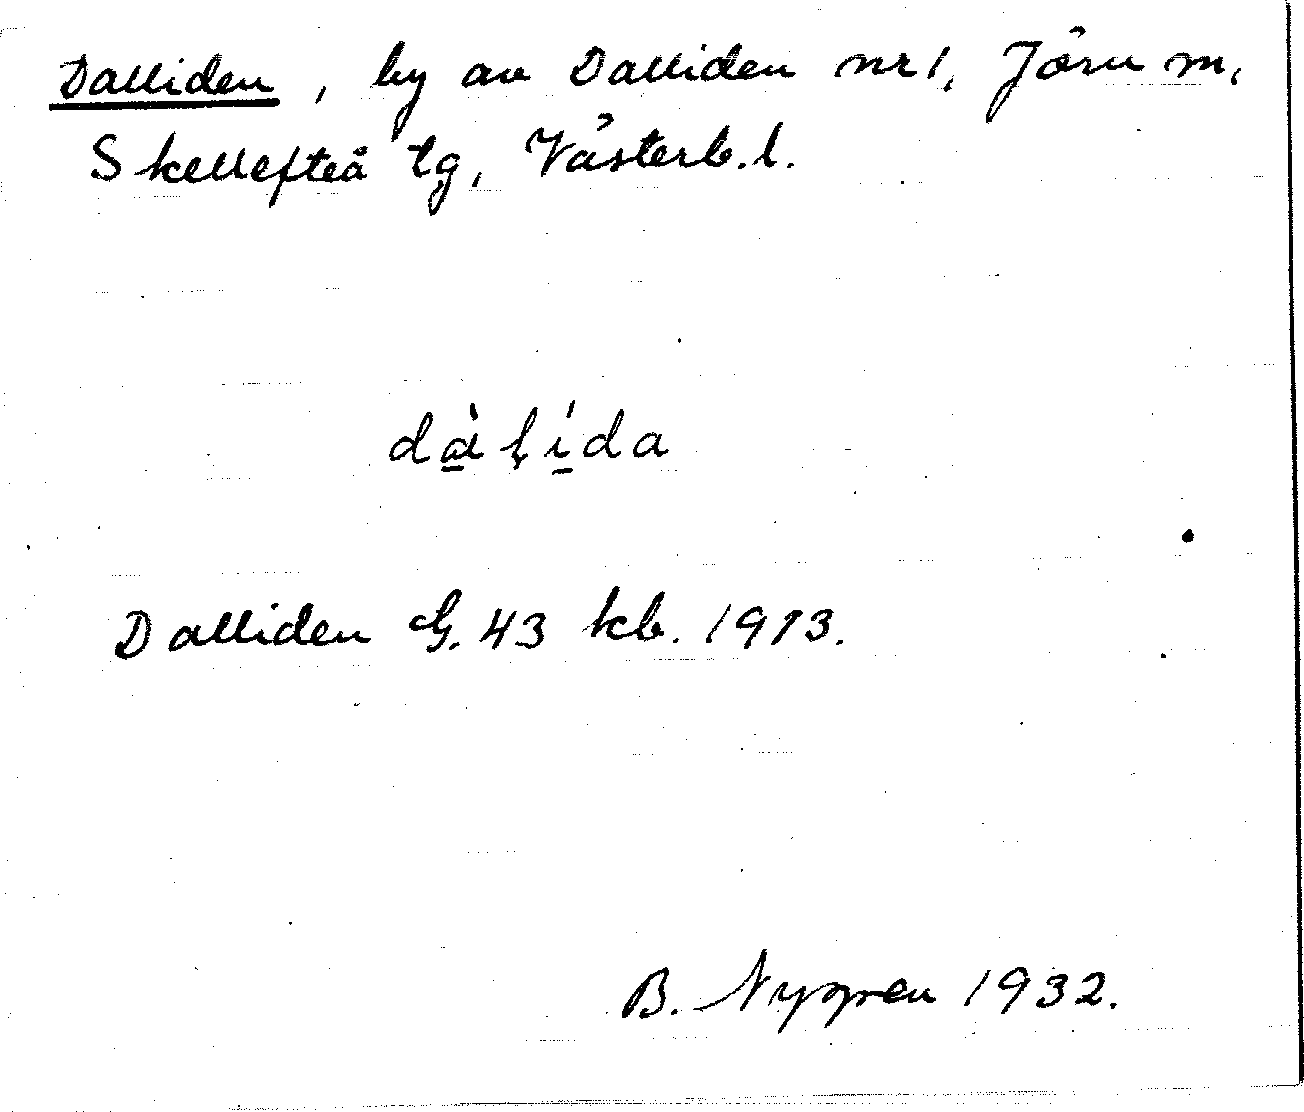 Dalliden, by av Dalliden nr 1, Jörn m,
Skellefteå tg, Västerb. l.
dàl̨ída
Dalliden G. 43 kb. 1913.
B. Nygren 1932.